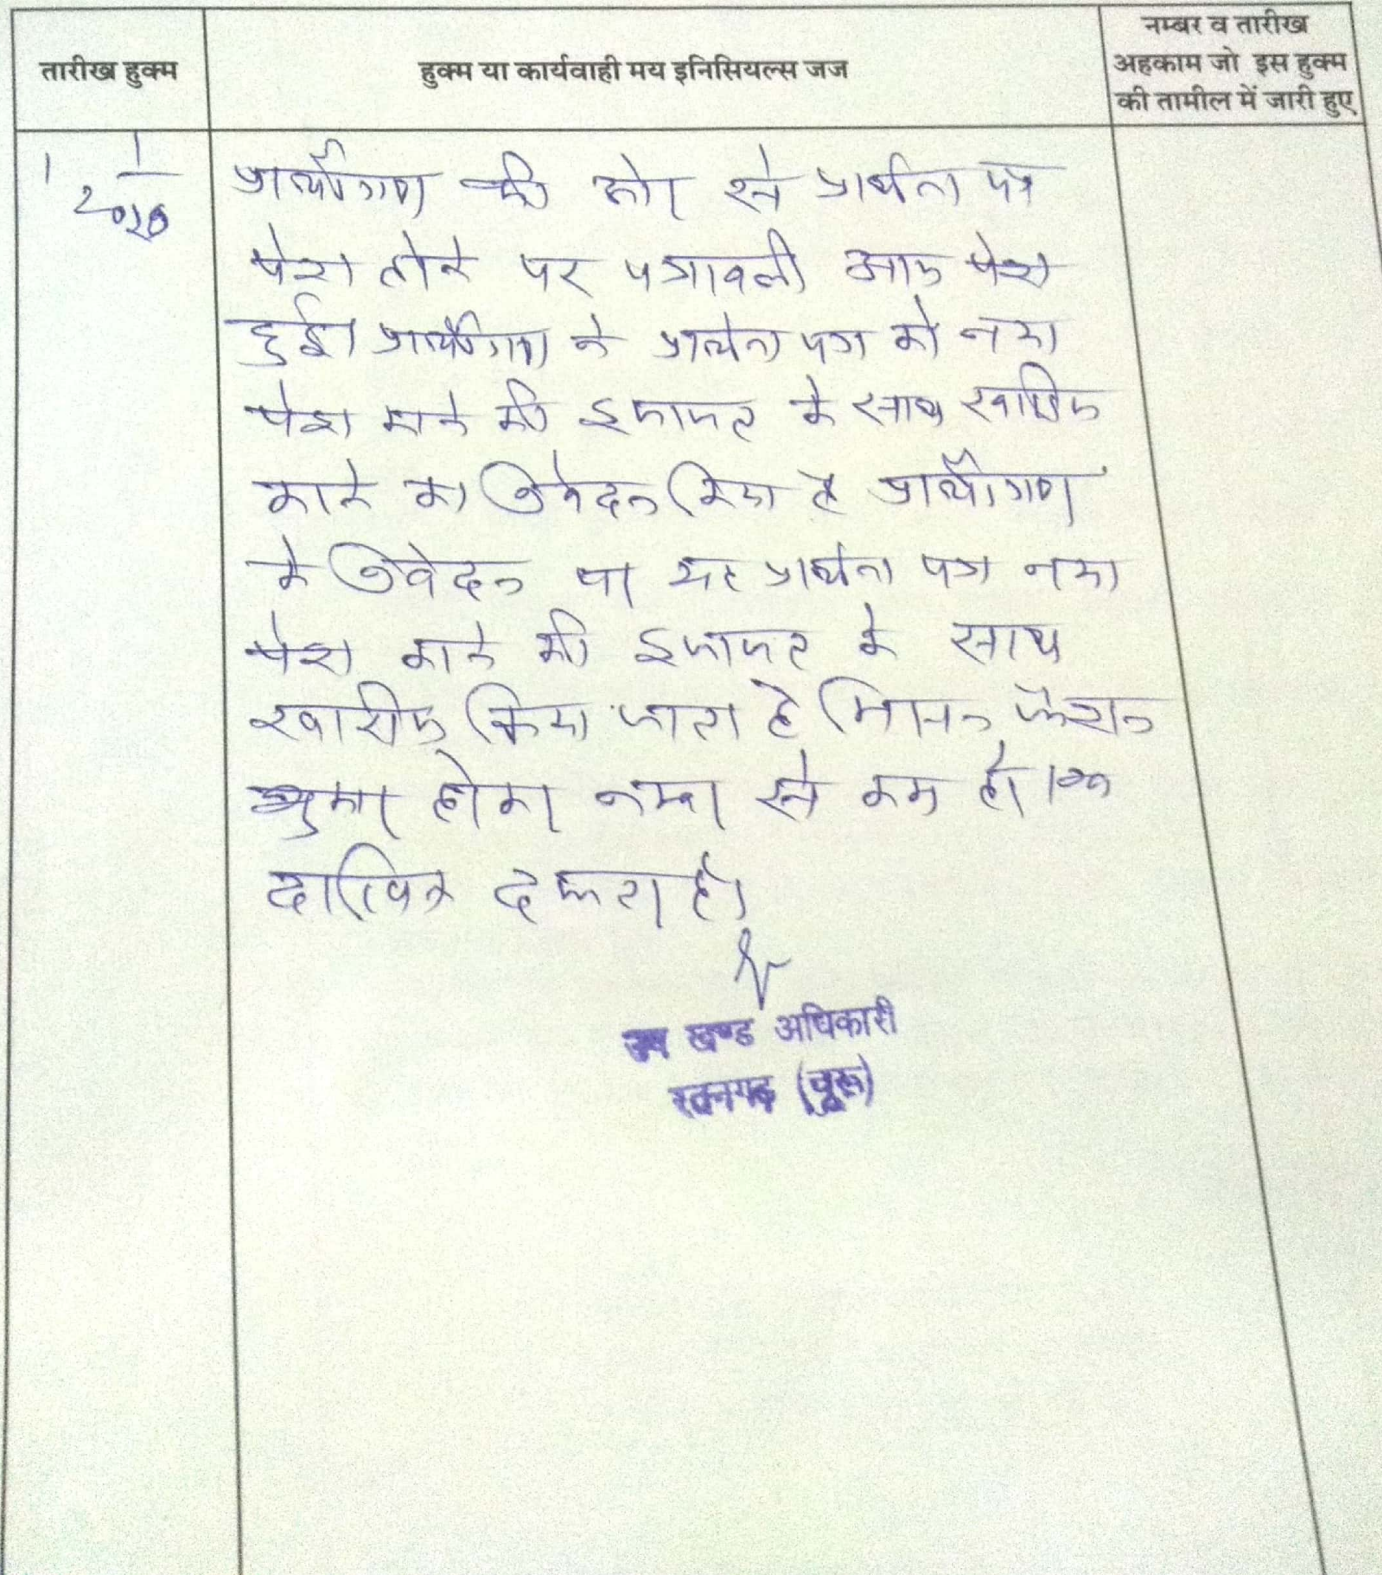 तारीख हुक्म
हुक्म या कार्यवाही मय इनिसियल्स जज
नम्बर व तारीख
अहकाम जो इस हुक्म
की तामील में जारी हुए
प्रार्थीगण की ओर से प्रार्थना पत्र
पेश होने पर पत्रावली आज पेश
हुई। प्रार्थीगण ने प्रार्थना पत्र को नया
पेश करने की इजाजत के साथ खारिज
करने का निवेदन किया है प्रार्थीगण
के निवेदन पर यह प्रार्थना पत्र नया
पेश करने की इजाजत के साथ
खारीज किया जाता है मिसल फैसल
शुमार होकर नम्बर से कम हो।
दाखिल दफ्तर हो।
उप खण्ड अधिकारी
रतनगढ़ (चूरू)